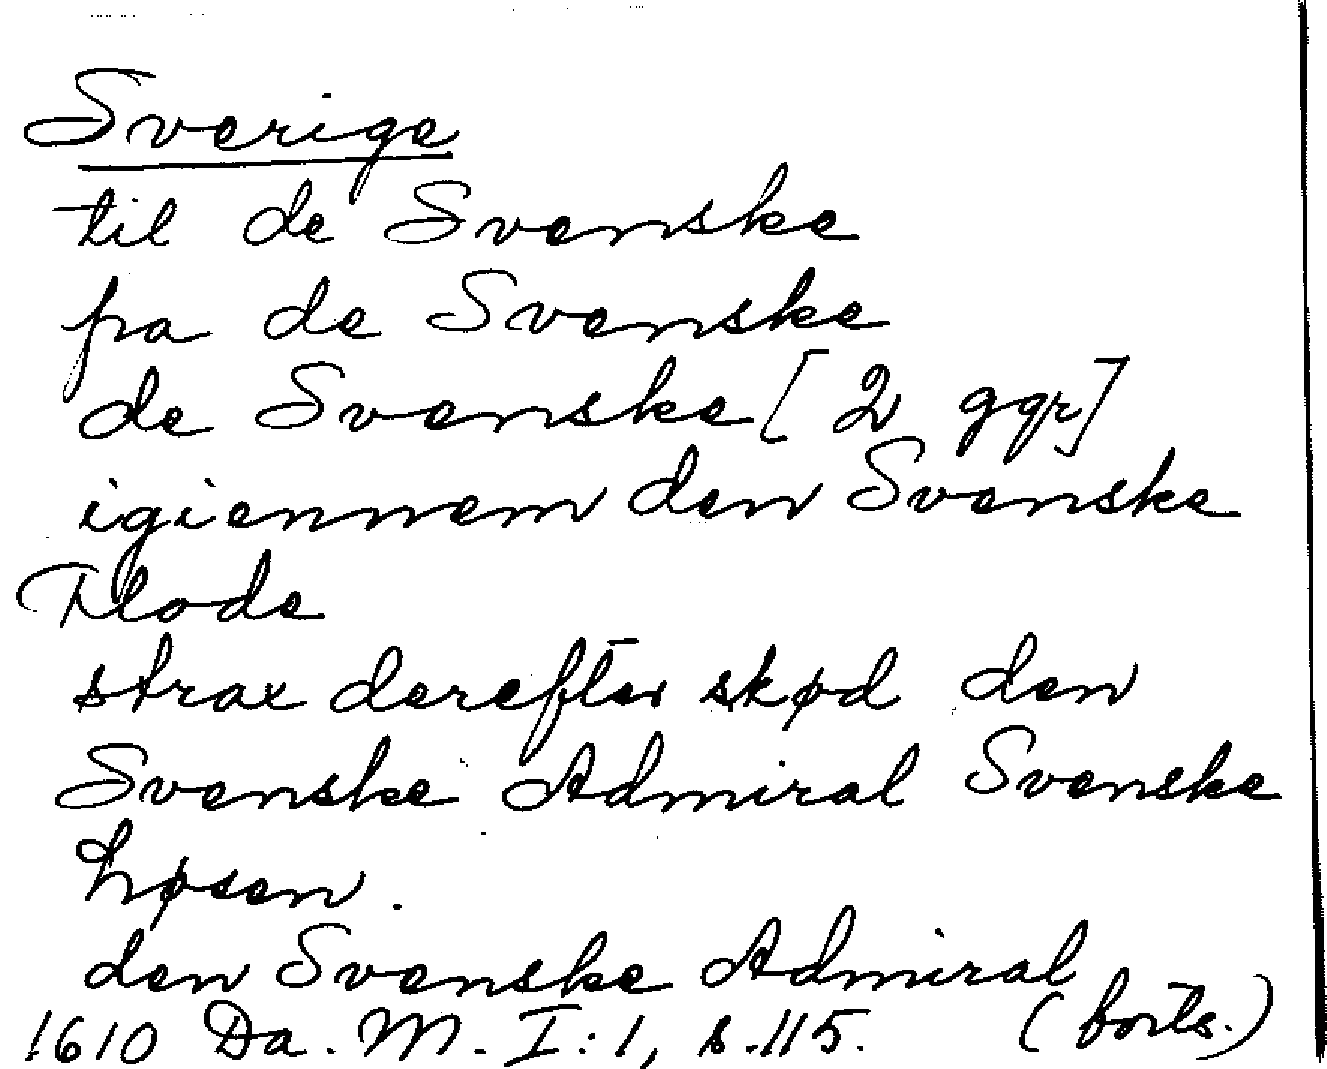 Sverige
til de Svenske
fra de Svenske
de Svenske [2 ggr]
igiennem den Svenske
Flode
strax derefter skød den
Svenske Admiral Svenske
høsen.
den Svenske Admiral
1610 Da. M. I:1, s.115. (forts.)